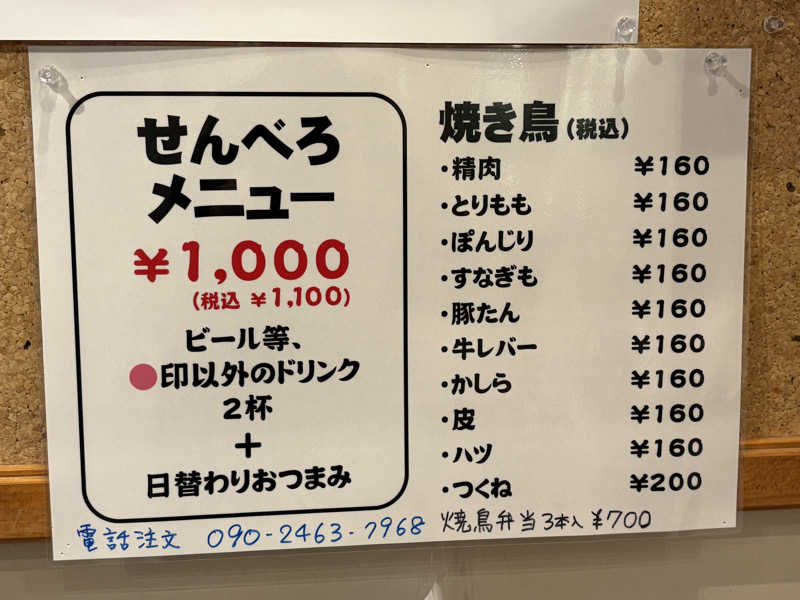 せんべろ
メニュー
¥1,000
(税込 ¥1,100)
ビール等、
●印以外のドリンク
2杯
+
日替わりおつまみ
電話注文 090-2463-7968
焼き鳥(税込)
・精肉 ¥160
・とりもも ¥160
・ぽんじり ¥160
・すなぎも ¥160
・豚たん ¥160
・牛レバー ¥160
・かしら ¥160
・皮 ¥160
・ハツ ¥160
・つくね ¥200
焼鳥弁当3本入 ¥700